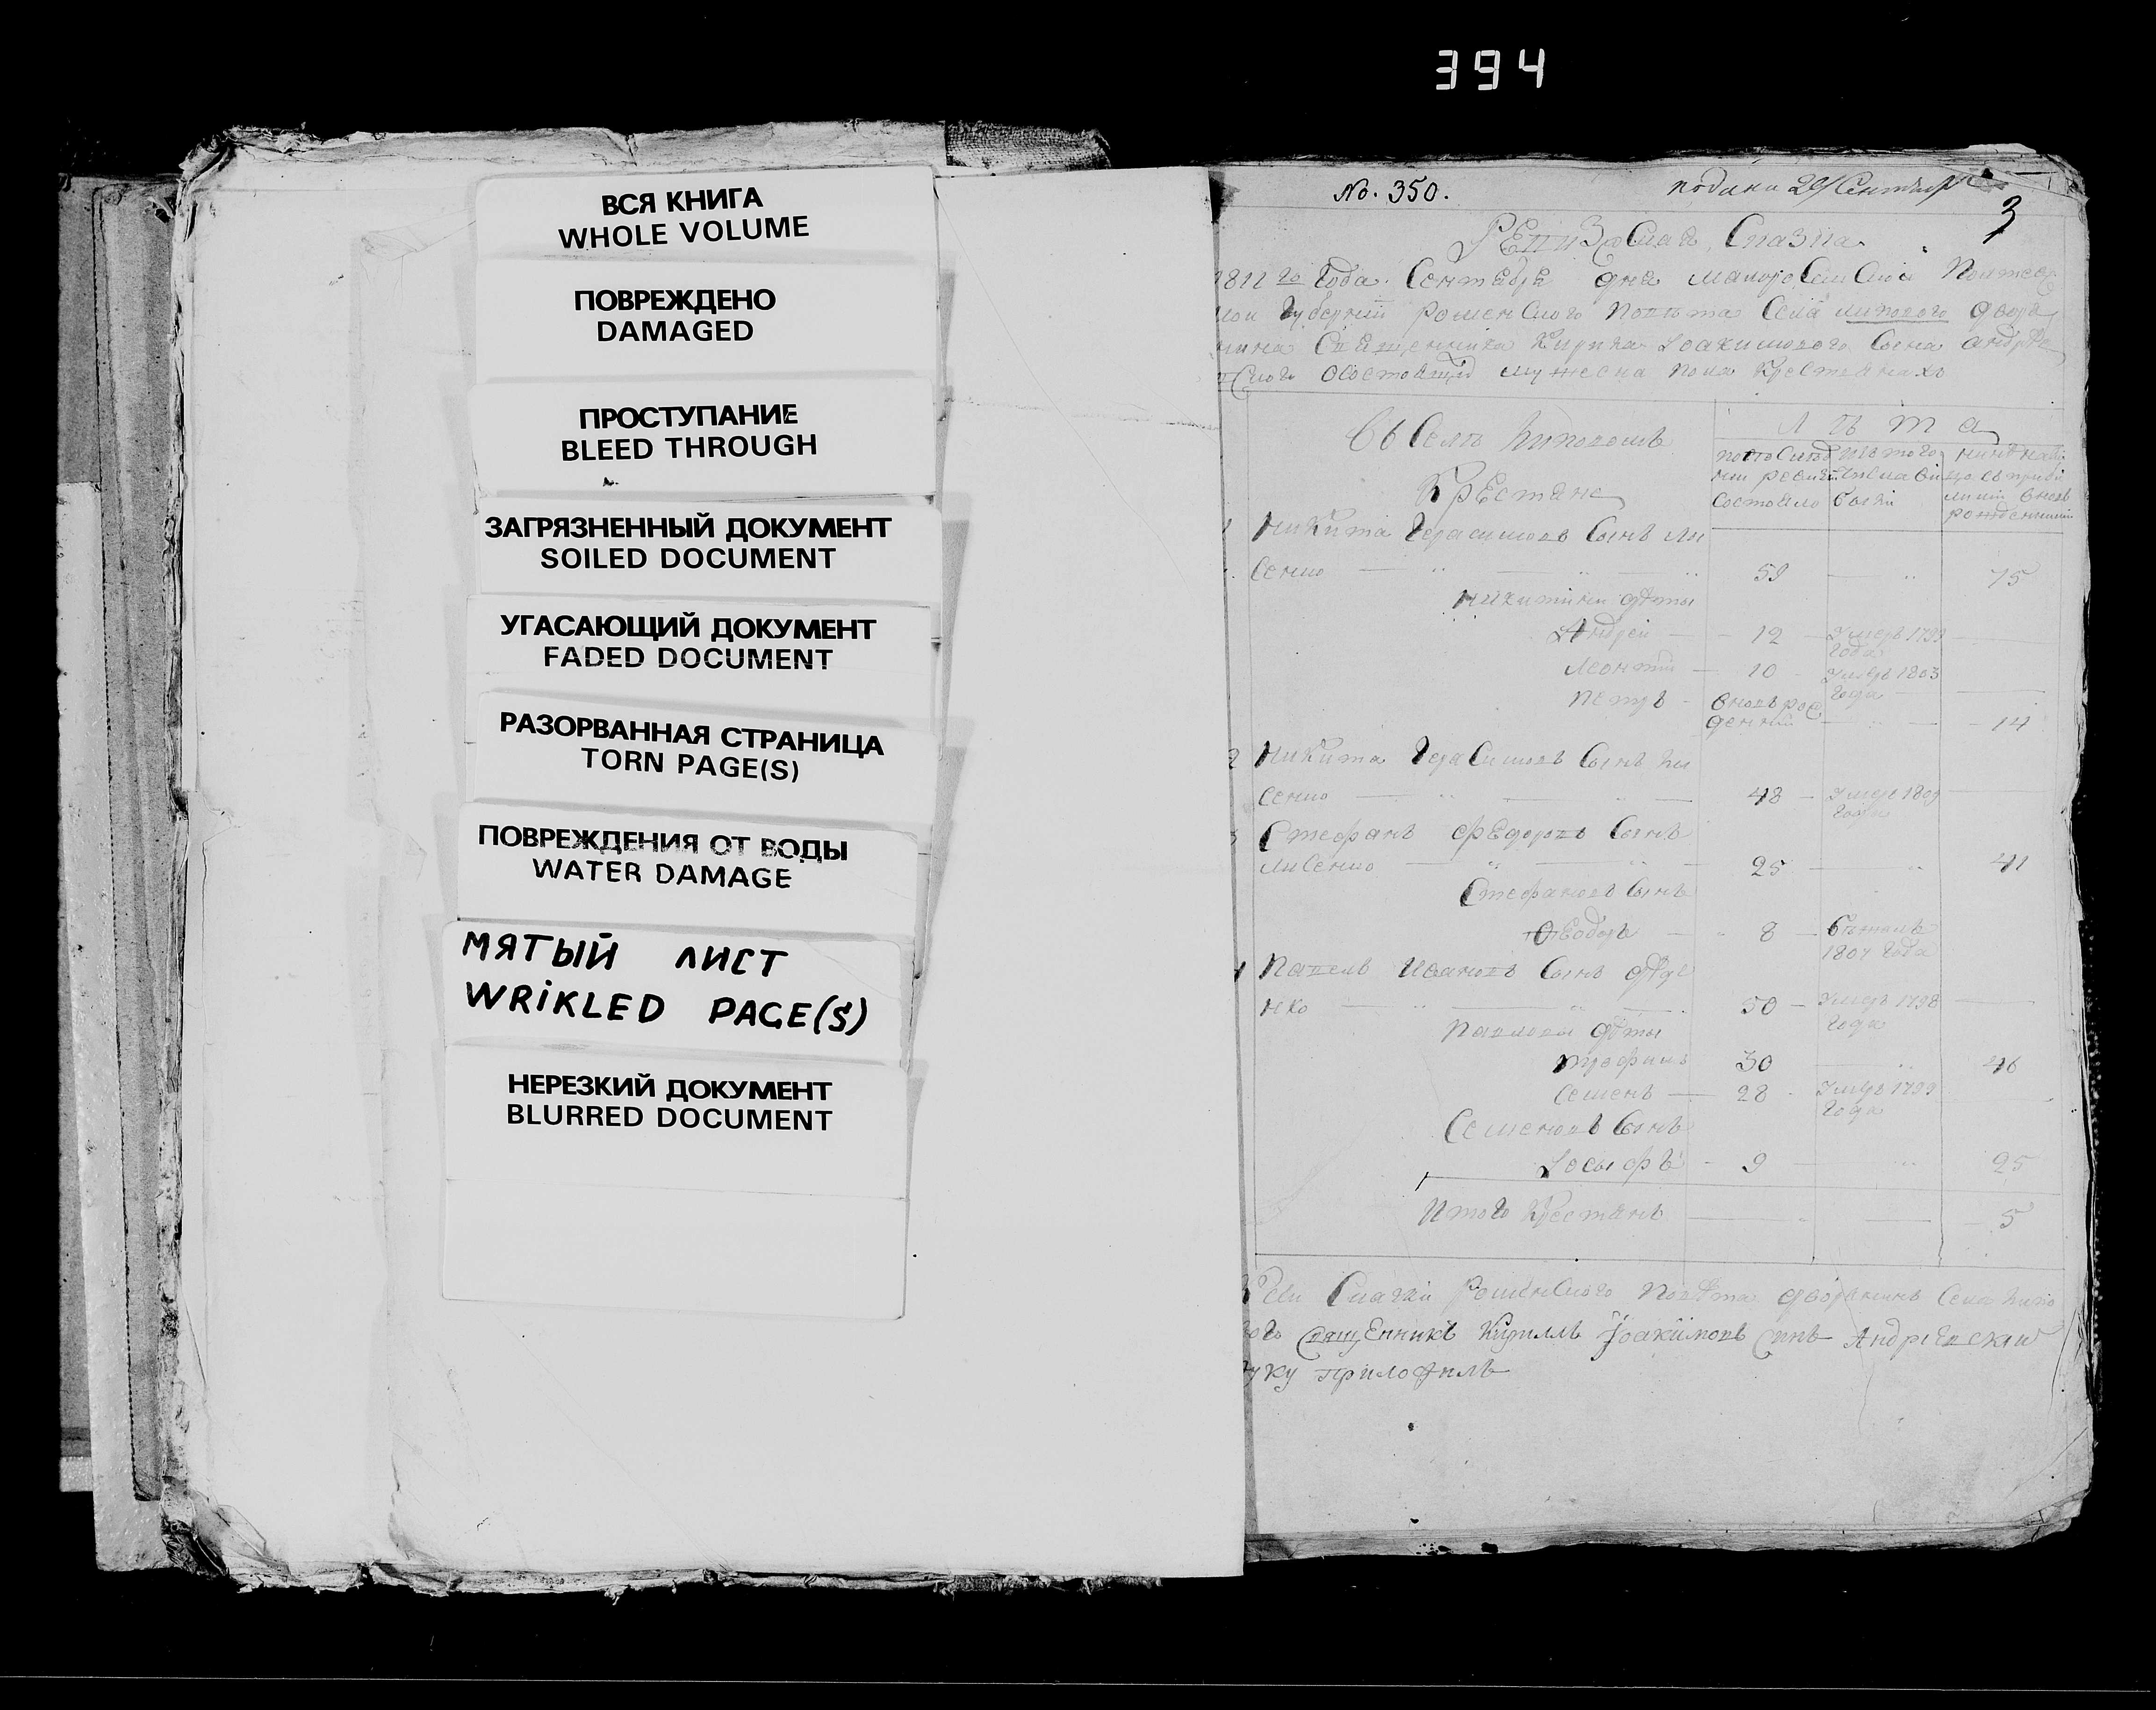 394
ВСЯ КНИГА
WHOLE VOLUME
ПОВРЕЖДЕНО
DAMAGED
ПРОСТУПАНИЕ
BLEED THROUGH
ЗАГРЯЗНЕННЫЙ ДОКУМЕНТ
SOILED DOCUMENT
УГАСАЮЩИЙ ДОКУМЕНТ
FADED DOCUMENT
РАЗОРВАННАЯ СТРАНИЦА
TORN PAGE(S)
ПОВРЕЖДЕНИЯ ОТ ВОДЫ
WATER DAMAGE
МЯТЫЙ ЛИСТ
WRIKLED PAGE(S)
НЕРЕЗКИЙ ДОКУМЕНТ
BLURRED DOCUMENT
No. 350. подана 29 Сентября
3
Ревизская Сказка
1811 го Года Сентября дня Малоросийской Полтавс
кой Губернии Роменского Повѣта Села Липового двора
нина Священника Кирила Иоакимового Сына Андрѣе
вского о состоящих мужеска пола крестянахъ
Въ Селѣ Липовомъ Лѣта
Крестяне
1 Никита Герасимовъ Сынъ Ли
сенко 59 75
Никитини дѣти
Андрей 12 Умеръ 1799 Года
Леонтий 10 Умеръ 1803 Года
Петръ вновь рож
денний 14
2 Никита Герасимовъ Сынъ Ли
сенко 43 Умеръ 1809 Года
3 Стефанъ Федоровъ Сынъ
Лисенко 25 41
Стефановъ Сынъ
Феодоръ 8 бежалъ 1807 Года
4 Павелъ Ивановъ Сынъ
нко 50 Умеръ 1798 Года
Павлови дѣти
Трофимъ 30 46
Семенъ 28 Умеръ 1799 Года
Семеновъ Сынъ
Иосифъ 9 25
Итого Крестянъ 5
Сей Сказки Роменского Повѣта дворянинъ Села Липо
вого Священникъ Кириллъ Іоакимовъ Синъ Андріевский
руку приложилъ